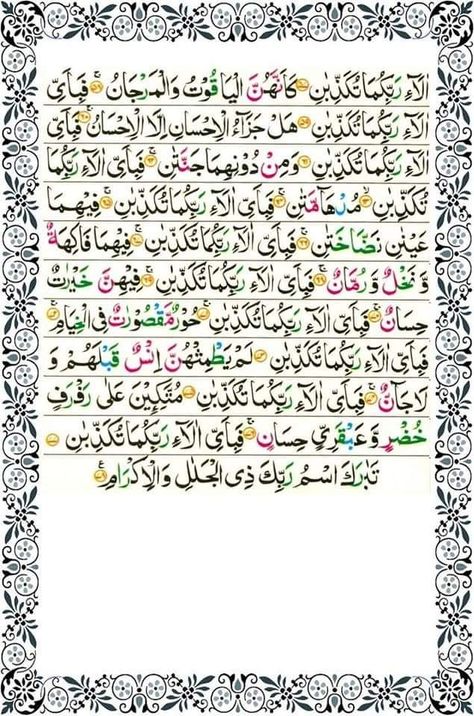 اٰلَآءِ رَبِّكُمَا تُكَذِّبٰنِ ۝ كَاَنَّهُنَّ الْيَاقُوْتُ وَالْمَرْجَانُ ۝ۚ فَبِاَيِّ
اٰلَآءِ رَبِّكُمَا تُكَذِّبٰنِ ۝ هَلْ جَزَآءُ الْاِحْسَانِ اِلَّا الْاِحْسَانُ ۝ۚ فَبِاَيِّ
اٰلَآءِ رَبِّكُمَا تُكَذِّبٰنِ ۝ وَمِنْ دُوْنِهِمَا جَنَّتٰنِ ۝ۚ فَبِاَيِّ اٰلَآءِ رَبِّكُمَا
تُكَذِّبٰنِ ۝ۙ مُدْهَآمَّتٰنِ ۝ۚ فَبِاَيِّ اٰلَآءِ رَبِّكُمَا تُكَذِّبٰنِ ۝ۚ فِيْهِمَا
عَيْنٰنِ نَضَّاخَتٰنِ ۝ۚ فَبِاَيِّ اٰلَآءِ رَبِّكُمَا تُكَذِّبٰنِ ۝ فِيْهِمَا فَاكِهَةٌ
وَّ نَخْلٌ وَّ رُمَّانٌ ۝ۚ فَبِاَيِّ اٰلَآءِ رَبِّكُمَا تُكَذِّبٰنِ ۝ۚ فِيْهِنَّ خَيْرٰتٌ
حِسَانٌ ۝ۚ فَبِاَيِّ اٰلَآءِ رَبِّكُمَا تُكَذِّبٰنِ ۝ۚ حُوْرٌ مَّقْصُوْرٰتٌ فِي الْخِيَامِ ۝ۚ
فَبِاَيِّ اٰلَآءِ رَبِّكُمَا تُكَذِّبٰنِ ۝ۚ لَمْ يَطْمِثْهُنَّ اِنْسٌ قَبْلَهُمْ وَ
لَا جَآنٌّ ۝ۚ فَبِاَيِّ اٰلَآءِ رَبِّكُمَا تُكَذِّبٰنِ ۝ مُتَّكِـِٕيْنَ عَلٰى رَفْرَفٍ
خُضْرٍ وَّ عَبْقَرِيٍّ حِسَانٍ ۝ۚ فَبِاَيِّ اٰلَآءِ رَبِّكُمَا تُكَذِّبٰنِ ۝
تَبٰرَكَ اسْمُ رَبِّكَ ذِي الْجَلٰلِ وَالْاِكْرَامِ ۝